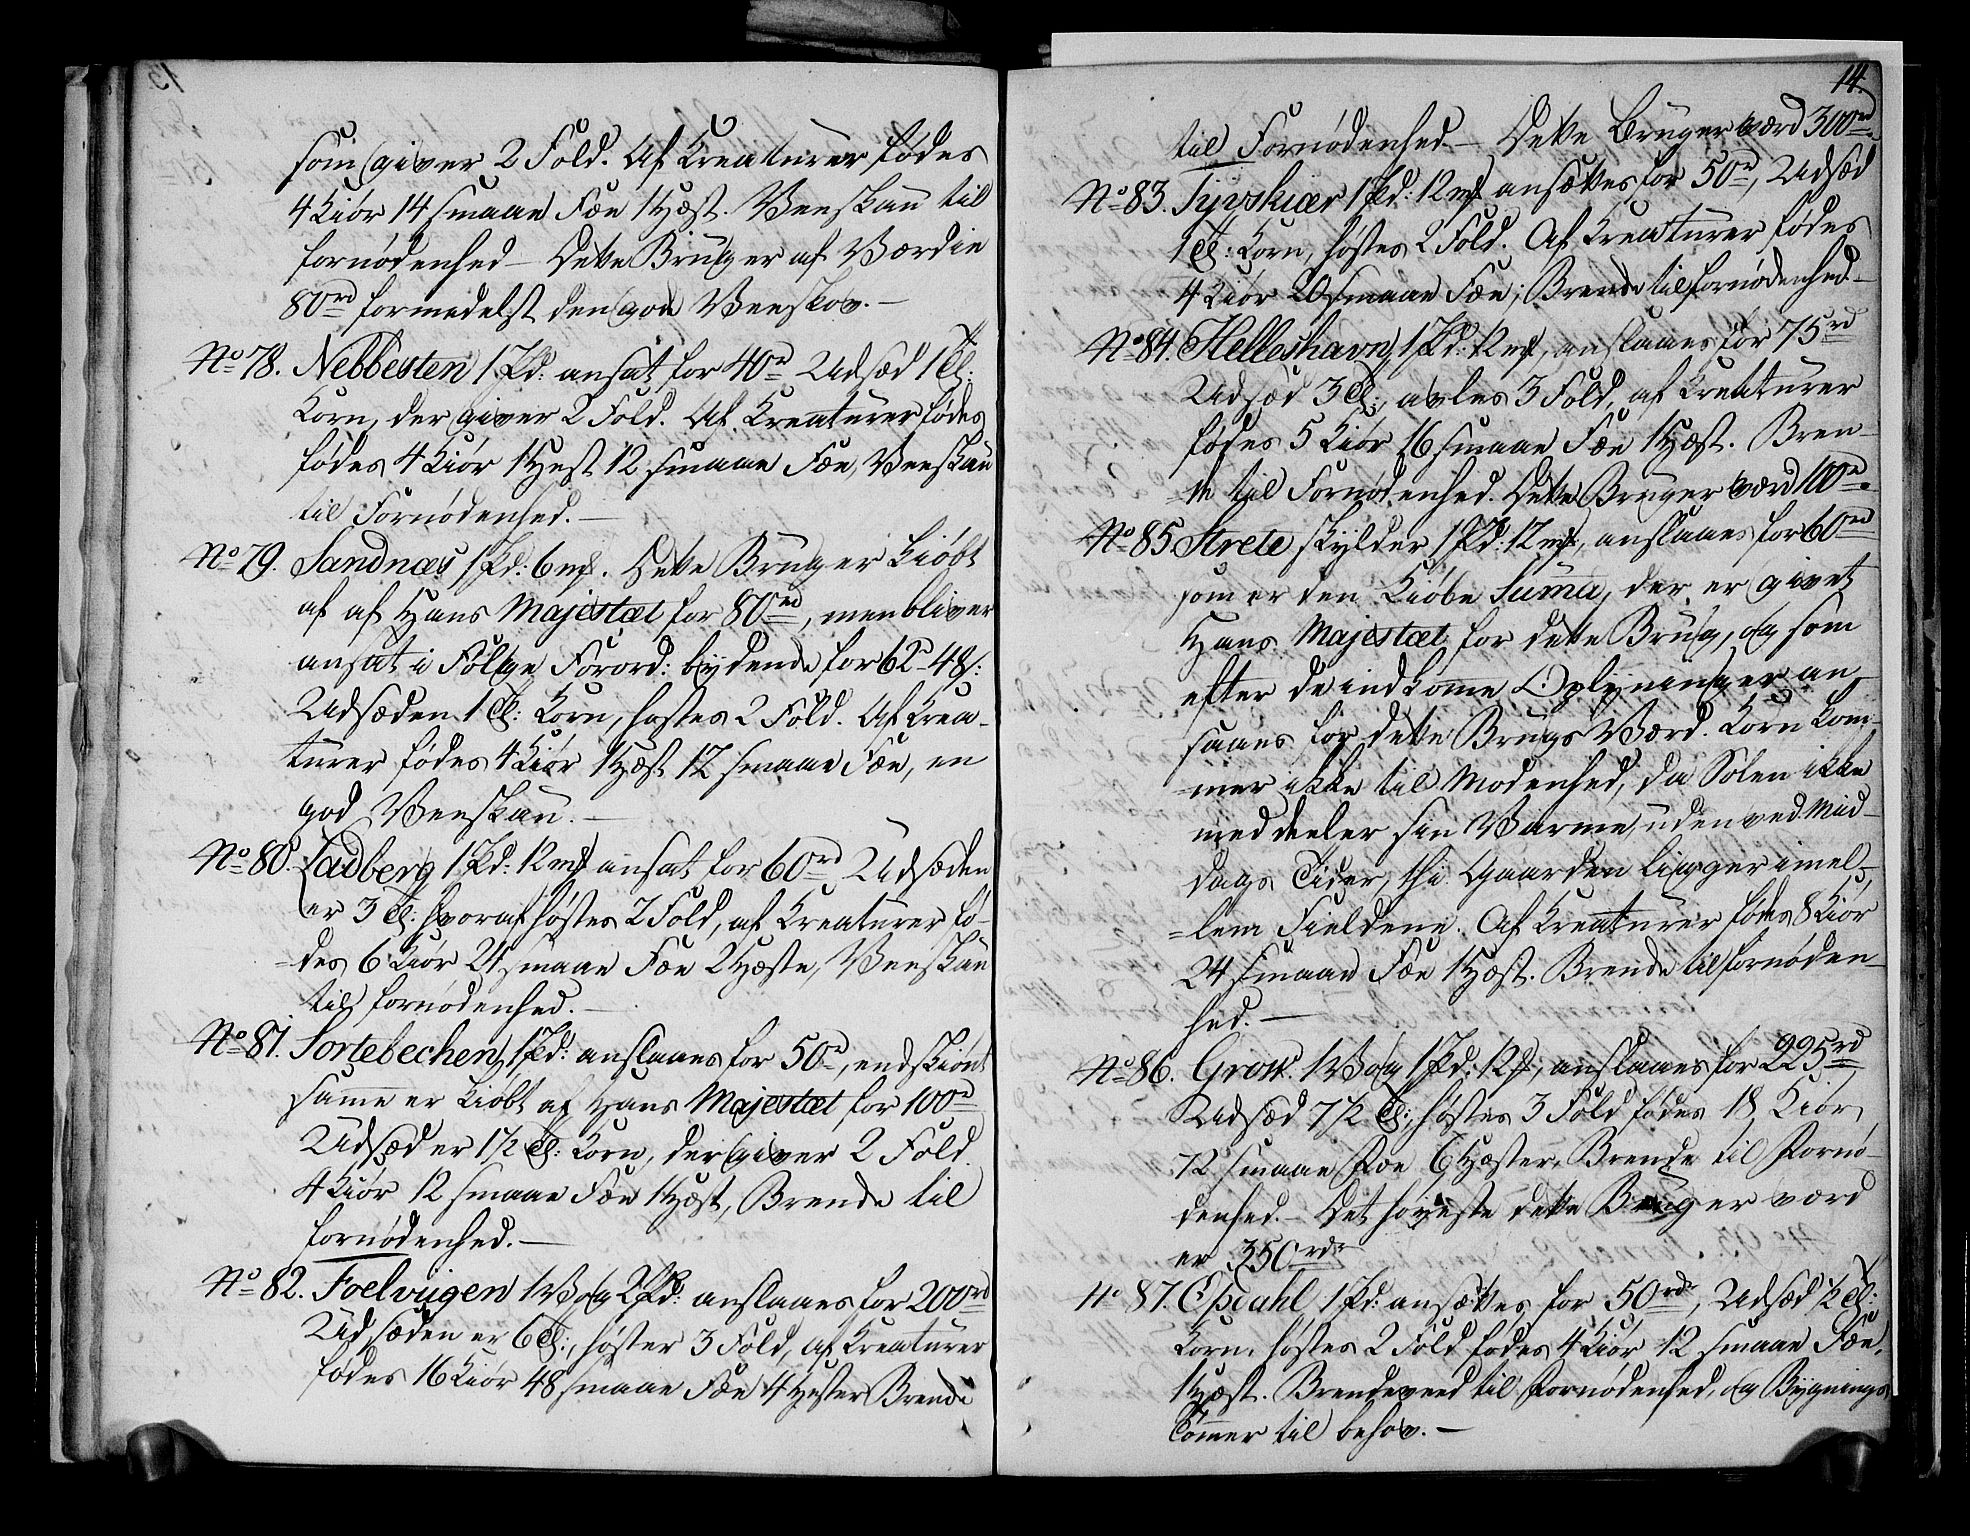 som giver 2 Fold. Af Kreaturer fødes
4 Kiör 14 smaae Fæe 1 Hæst. Veeskau til
fornødenhed – Dette Brug er af Værdie
80rd formedelst den gode Veeskov. –
No 78. Nebbesten 1 Pd: ansat for 40rd Udsæd 1 Td:
Korn, der giver 2 Fold. Af Kreaturer fødes
fødes 4 Kiör 1 Hest 12 smaae Fæe, Veeskau
til Fornødenhed. –
No 79. Sandnæs 1 Pd: 6 mk. Dette Brug er kiøbt
af af Hans Majestæt for 80rd, men bliver
ansat i Følge Forord: bydende for 62rd 48s:
Udsæden 1 Td: Korn, høstes 2 Fold. Af Krea-
turer fødes 4 Kiör 1 Hæst 12 smaae Fæe, en
god Veeskau. –
No 80. Ladberg 1 Pd: 12 mk ansat for 60rd Udsæden
er 3 Td: hvoraf høstes 2 Fold, af Kreaturer fø-
des 6 Kiör 24 smaae Fæe 2 Hæste, Veeskau
til fornødenhed. –
No 81. Sortebechen, 1 Pd: anslaaes for 50rd, endskiönt
samme er kiøbt af Hans Majestæt for 100rd
Udsæd er 1 1/2 Td: Korn, der giver 2 Fold.
4 Kiör 12 smaae Fæe 1 Hæst, Brende til
fornødenhed. –
No 82. Foelviigen 1 Vog 2 Pd: anslaaes for 200rd
Udsæden er 6 Td:, høster 3 Fold, af Kreaturer
fødes 16 Kiör 48 smaae Fæe 4 Hester Brende
14.
til Fornødenhed – Dette Brug er værd 300rd.
No 83. Tyvskiær 1 Pd: 12 mk ansættes for 50rd, Udsæd
1 Td: Korn, høstes 2 Fold. Af Kreaturer fødes
4 Kiör 20 smaae Fæe; Brende til fornødenhed –
No 84. Helleshavn, 1 Pd: 12 mk, anslaaes for 75rd
Udsæd 3 Td:, avles 3 Fold, af Kreaturer
fødes 5 Kiör 16 smaae Fæe 1 Hæst. Bren-
de til Fornødenhed. Dette Brug er værd 100rd.
No 85. Strete skylder 1 Pd: 12 mk, anslaaes for 60rd
som er den Kiöbe Suma, der er givet
Hans Majestæt for dette Brug, og som
efter de indkomne Oplysninger an
saaes for dette Brugs Værd. Korn kom-
mer ikke til Modenhed, da Solen ikke
meddeeler sin Varme, uden ved Mid-
dags Tider, thi Gaarden ligger imel-
lem Fieldene. Af Kreaturer fødes 8 Kiör
24 smaae Fæe 1 Hæst. Brende til fornøden-
hed. –
No 86. Grow 1 Vog 1 Pd: 12 mk, anslaaes for 225rd
Udsæd 7 1/2 Td:, høstes 3 Fold fødes 18 Kiör
72 smaae Fæe 6 Hæster, Brende til Fornø-
denhed. – Det høyeste dette Brug er værd
er 350rdr
No 87. Espdahl 1 Pd: ansættes for 50rdr, Udsæd 1/2 Td:
Korn, høstes 2 Fold fødes 4 Kiör 12 smaae Fæe,
1 Hæst. Brendeveed til Fornødenhed, og Bygnings
Tömer til behov. –